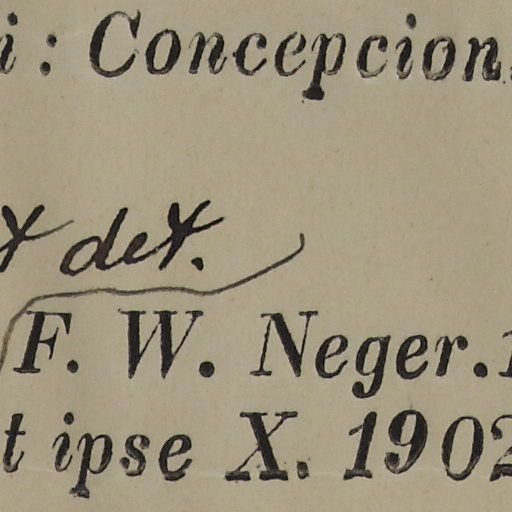 i: Concepcion.
& det.
F. W. Neger.
t ipse X. 1902